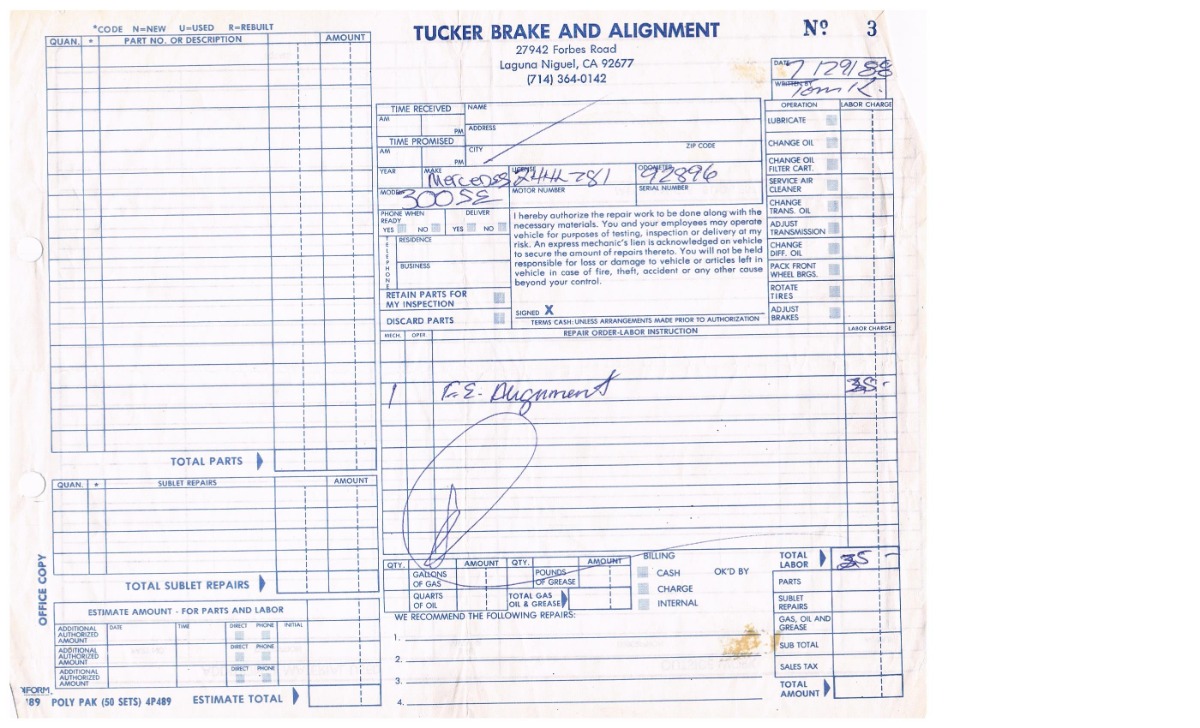 *CODE N=NEW U=USED R=REBUILT
QUAN. * PART NO. OR DESCRIPTION AMOUNT
TOTAL PARTS
QUAN. * SUBLET REPAIRS AMOUNT
TOTAL SUBLET REPAIRS
ESTIMATE AMOUNT - FOR PARTS AND LABOR
ADDITIONAL AUTHORIZED AMOUNT DATE TIME DIRECT PHONE INITIAL
ADDITIONAL AUTHORIZED AMOUNT DIRECT PHONE
ADDITIONAL AUTHORIZED AMOUNT DIRECT PHONE
ESTIMATE TOTAL
OFFICE COPY
'89 POLY PAK (50 SETS) 4P489
TUCKER BRAKE AND ALIGNMENT
27942 Forbes Road
Laguna Niguel, CA 92677
(714) 364-0142
Nº 3
DATE 7/29/88
WRITTEN BY Tom K.
TIME RECEIVED
AM
PM
TIME PROMISED
AM
PM
NAME
ADDRESS
CITY ZIP CODE
YEAR MAKE Mercedes LICENSE 2HH 781 ODOMETER 92896
MODEL 300SE MOTOR NUMBER SERIAL NUMBER
PHONE WHEN READY YES NO DELIVER YES NO
TELEPHONE
RESIDENCE
BUSINESS
RETAIN PARTS FOR
MY INSPECTION
DISCARD PARTS
I hereby authorize the repair work to be done along with the
necessary materials. You and your employees may operate
vehicle for purposes of testing, inspection or delivery at my
risk. An express mechanic's lien is acknowledged on vehicle
to secure the amount of repairs thereto. You will not be held
responsible for loss or damage to vehicle or articles left in
vehicle in case of fire, theft, accident or any other cause
beyond your control.
SIGNED X
TERMS CASH: UNLESS ARRANGEMENTS MADE PRIOR TO AUTHORIZATION
OPERATION LABOR CHARGE
LUBRICATE
CHANGE OIL
CHANGE OIL
FILTER CART.
SERVICE AIR
CLEANER
CHANGE
TRANS. OIL
ADJUST
TRANSMISSION
CHANGE
DIFF. OIL
PACK FRONT
WHEEL BRGS.
ROTATE
TIRES
ADJUST
BRAKES
MECH. OPER. REPAIR ORDER-LABOR INSTRUCTION LABOR CHARGE
1 F.E. Alignment 35 -
QTY. AMOUNT QTY. AMOUNT
GALLONS OF GAS POUNDS OF GREASE
QUARTS OF OIL TOTAL GAS OIL & GREASE
BILLING
CASH OK'D BY
CHARGE
INTERNAL
WE RECOMMEND THE FOLLOWING REPAIRS:
1.
2.
3.
4.
TOTAL LABOR 35 -
PARTS
SUBLET REPAIRS
GAS, OIL AND GREASE
SUB TOTAL
SALES TAX
TOTAL AMOUNT